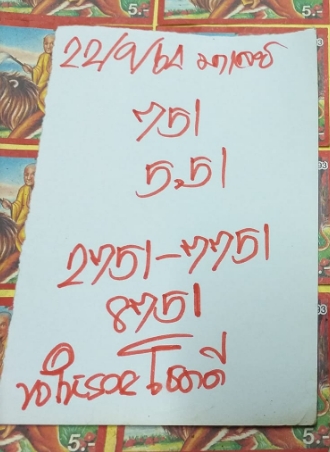 22/9/62 มาเลย์
751
551
2751-7751
8751
ขอให้รวย โชคดี
5.-
5.-
5.-
5.-